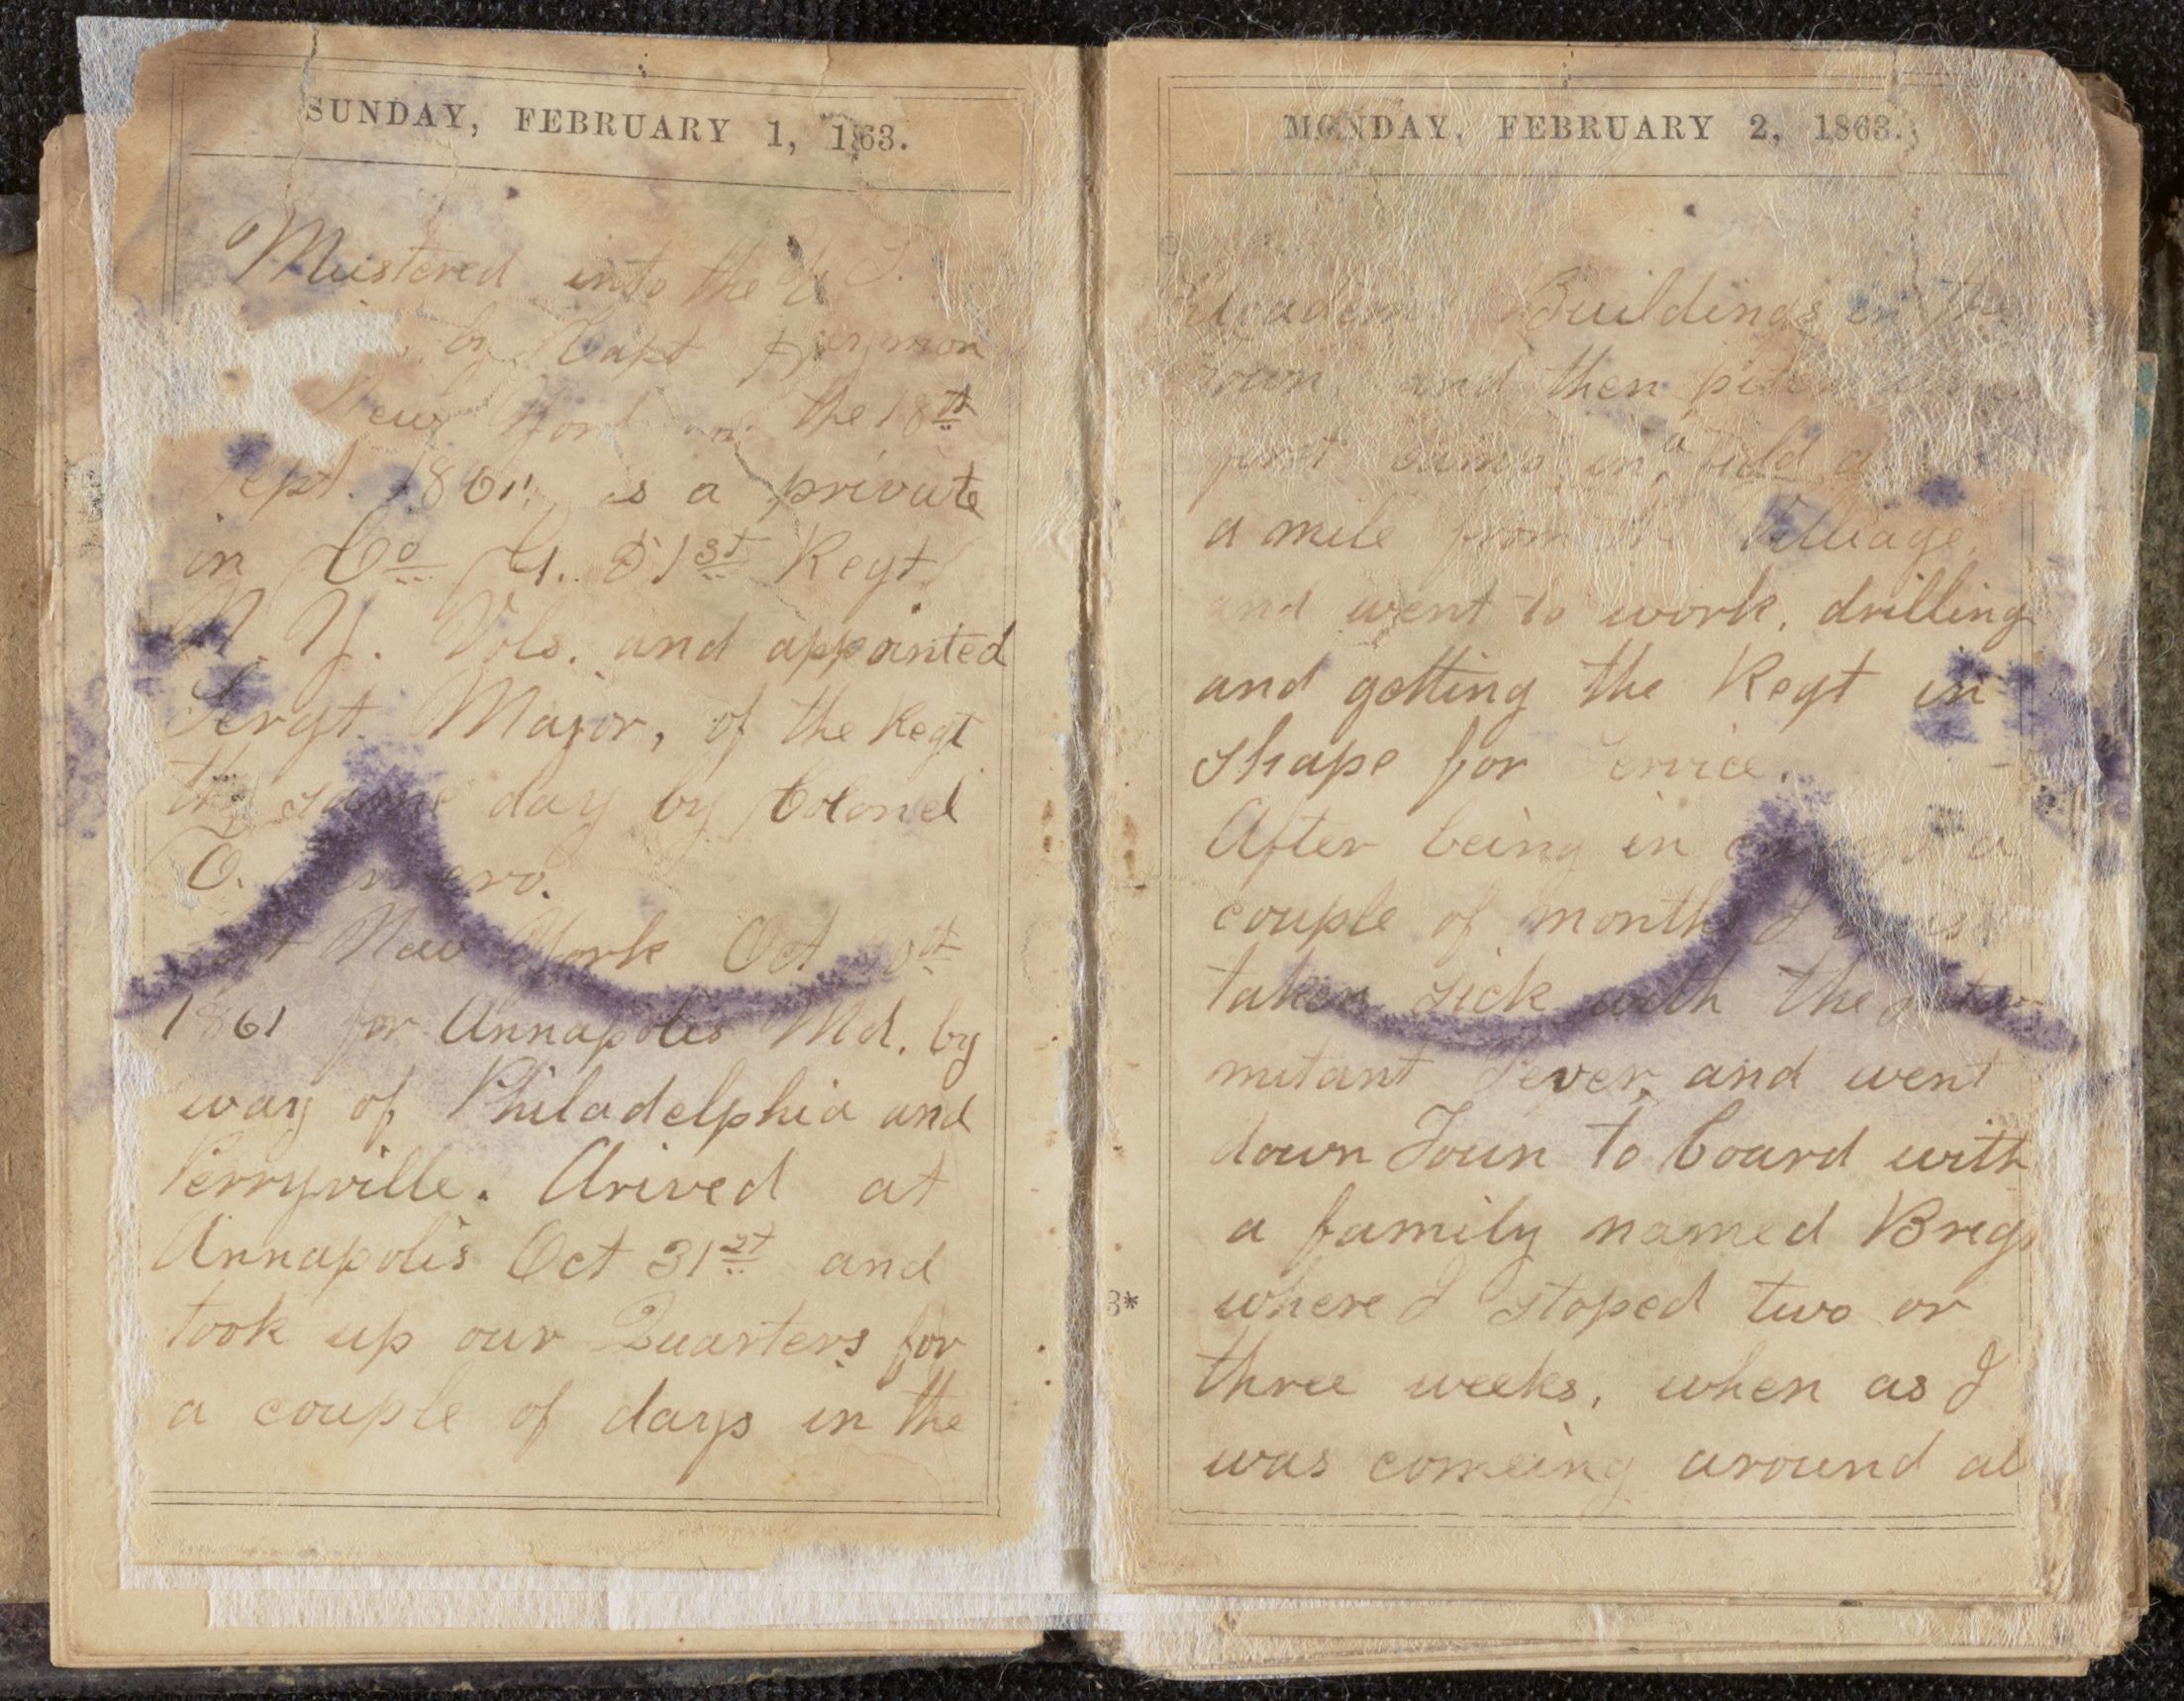 SUNDAY, FEBRUARY 1, 1863.
Mustered into the U. S.
by Capt
New York on the 18th
Sept. 1861, as a private
in Co G. 51st Regt
N. Y. Vols. and appointed
Sergt. Major, of the Regt
the same day by Colonel
E.
New York Oct
1861 for Annapolis Md. by
way of Philadelphia and
Perryville. Arived at
Annapolis Oct 31st and
took up our Quarters for
a couple of days in the
MONDAY, FEBRUARY 2, 1863.
Academy Buildings in the
Town, and then
first camp in a field
a mile from the Village,
and went to work, drilling
and getting the Regt in
shape for Service.
After being in
couple of months I was
taken sick with the
mitant Fever, and went
down Town to board with
a family named Brigs
where I stoped two or
three weeks, when as I
was comeing around al
3*